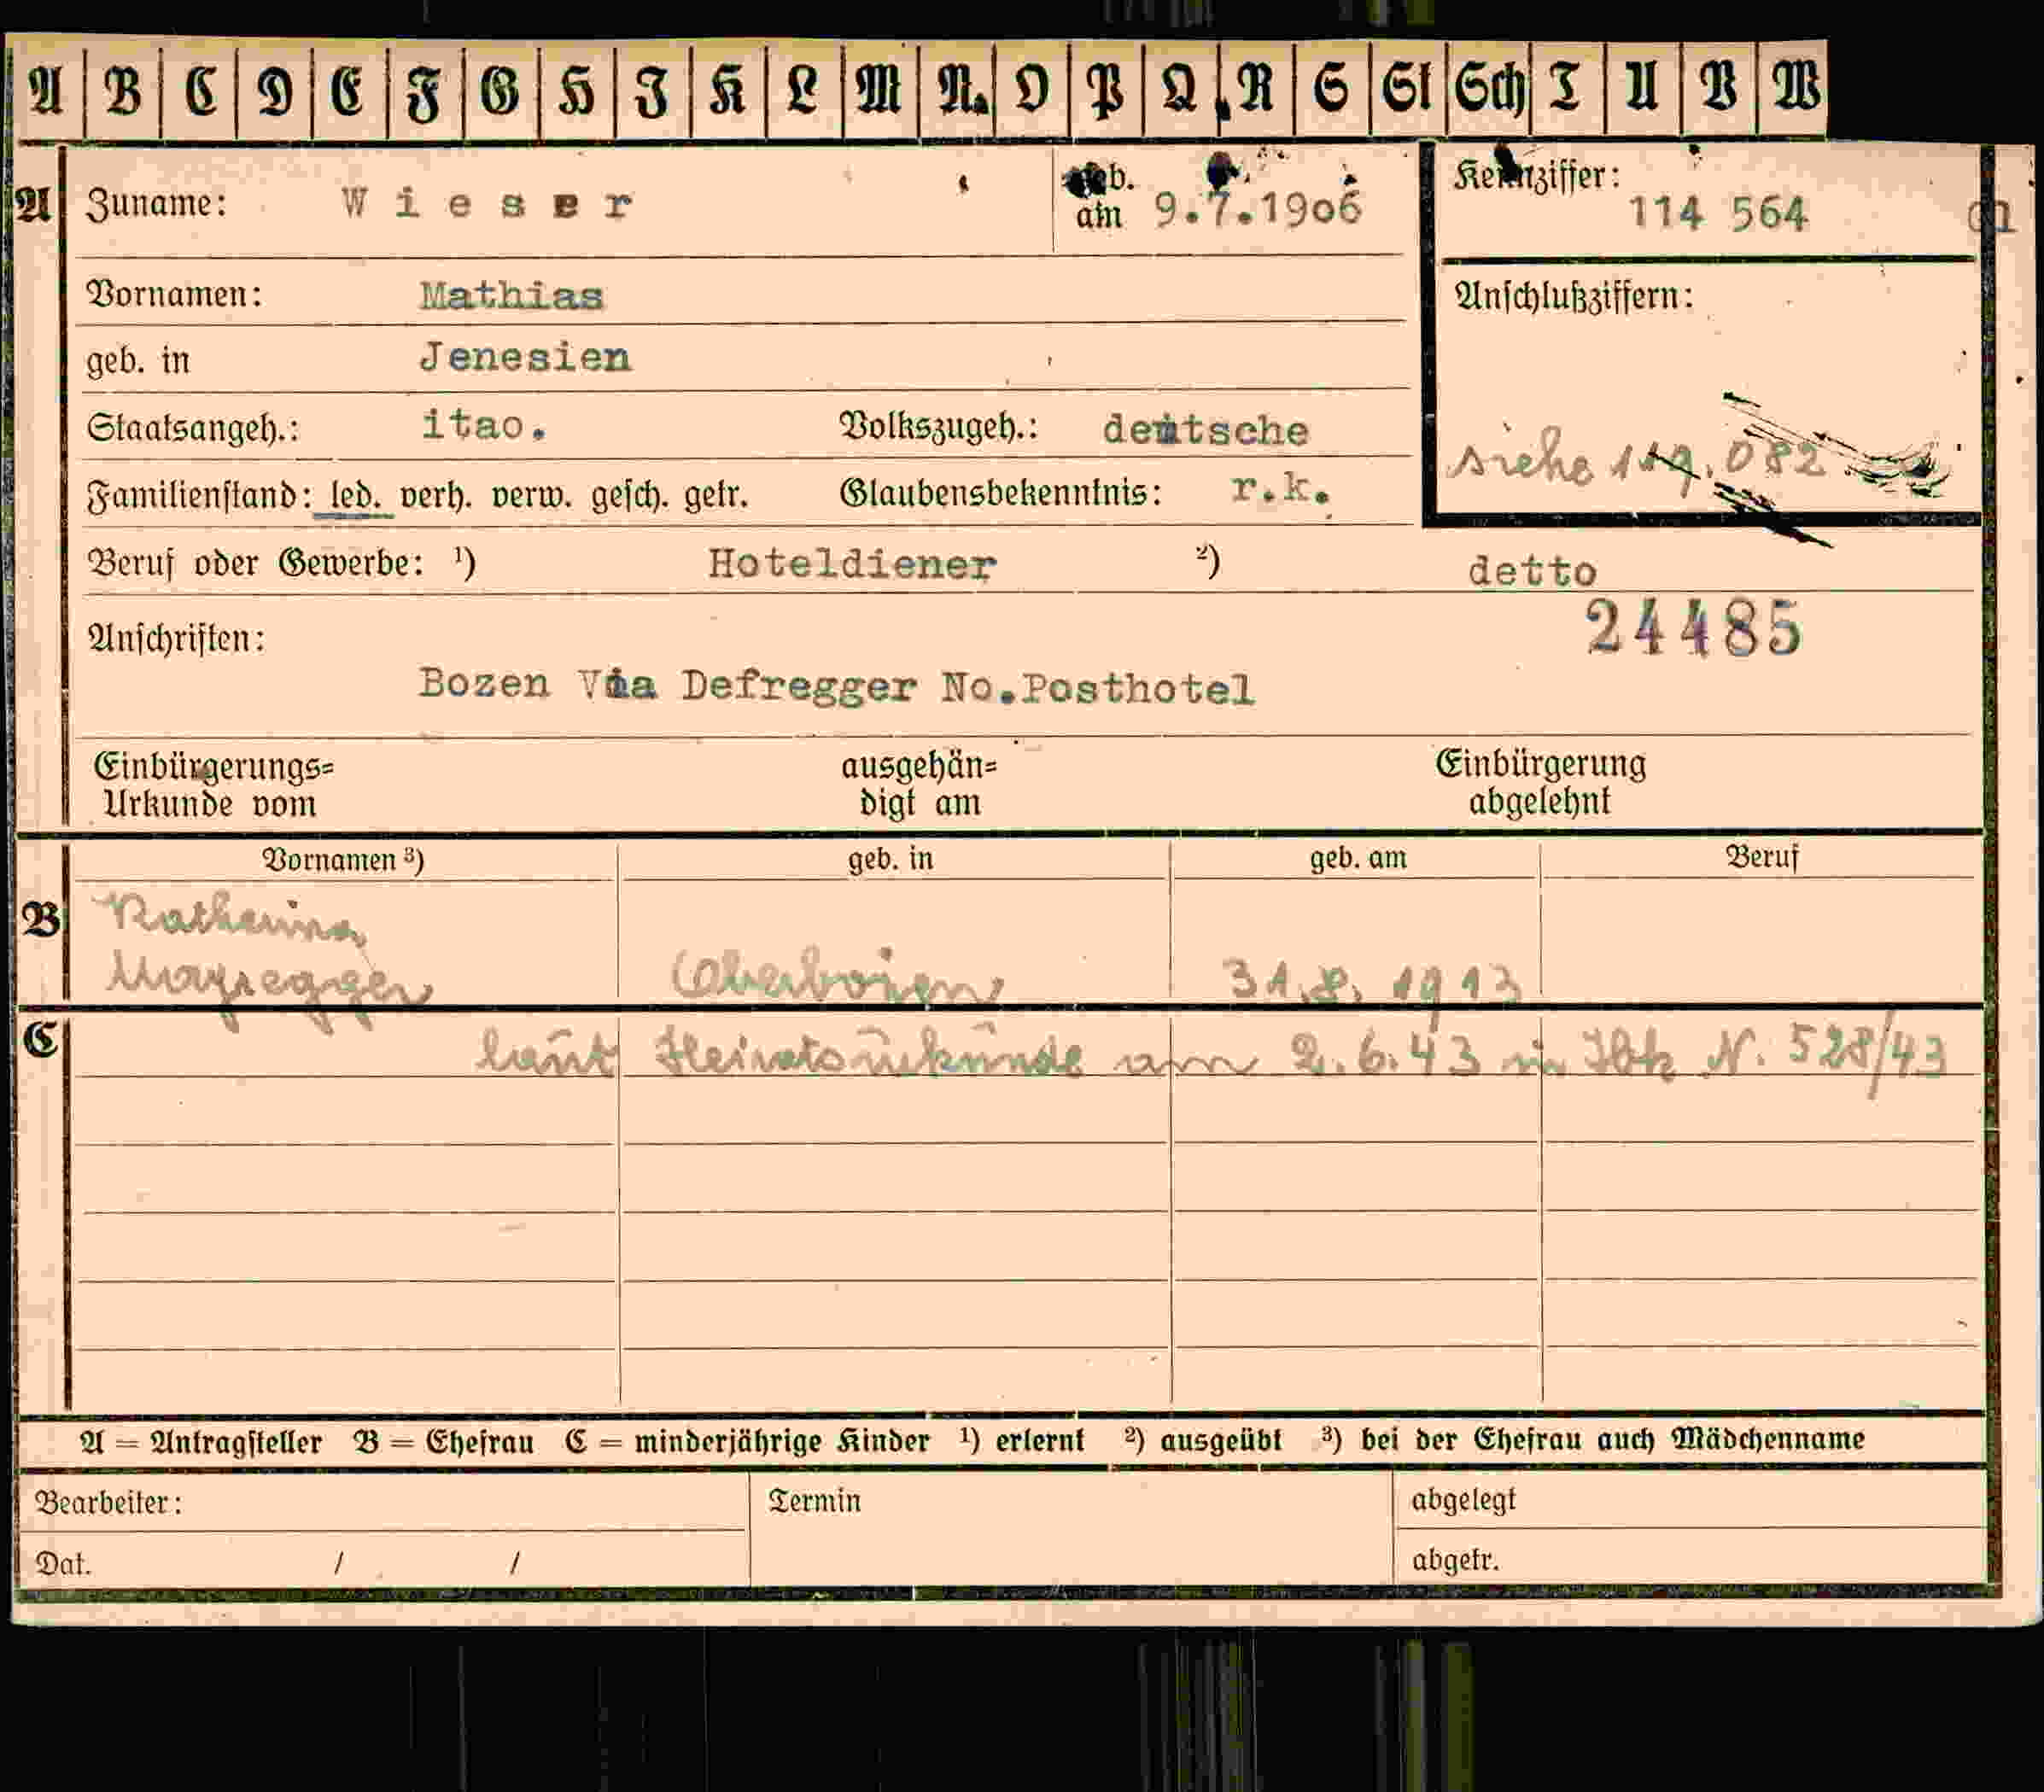 A B C D E F G H J K L M N O P Q R S St Sch T U V W
A Zuname: Wieser geb. am 9.7.1906 Kennziffer: 114 564
Vornamen: Mathias Anschlußziffern:
geb. in Jenesien
Staatsangeh.: itao. Volkszugeh.: deutsche siehe 119.082
Familienstand: led. verh. verw. gesch. getr. Glaubensbekenntnis: r.k.
Beruf oder Gewerbe: ¹) Hoteldiener ²) detto
Anschriften: 24485
Bozen Via Defregger No.Posthotel
Einbürgerungs= ausgehän= Einbürgerung
Urkunde vom digt am abgelehnt
Vornamen ³) geb. in geb. am Beruf
B Katharina
Mayregger Oberbozen 31.8.1913
C laut Heiratsurkunde am 2.6.43 in Ibk N. 528/43
A = Antragsteller B = Ehefrau C = minderjährige Kinder ¹) erlernt ²) ausgeübt ³) bei der Ehefrau auch Mädchenname
Bearbeiter: Termin abgelegt
Dat. / / abgetr.